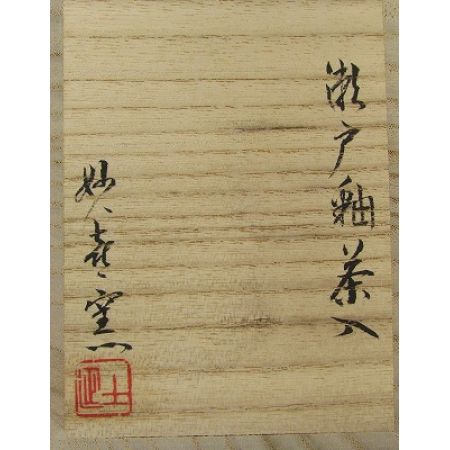 瀬戸釉茶入
妙喜窯